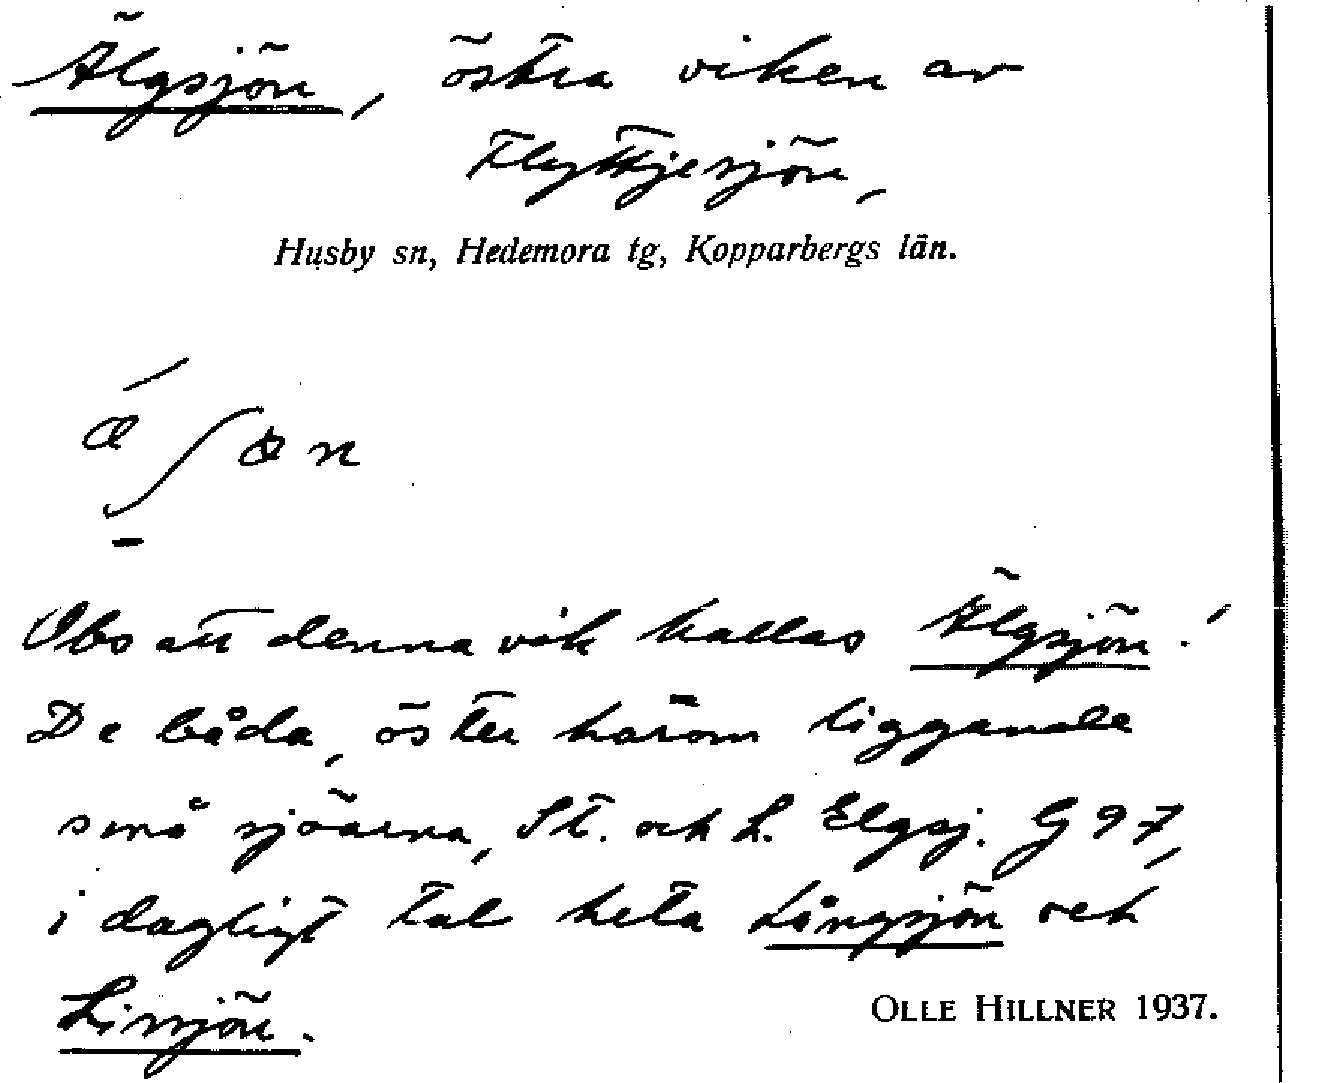 Älgsjön, östra viken av
Flyttjesjön,
Husby sn, Hedemora tg, Kopparbergs län.
Obs att denna vik kallas Älgsjön!
De båda, öster härom liggande
små sjöarna, St. och L. Elgsj. G 97,
i dagligt tal heta Långsjön och
Linsjön.
OLLE HILLNER 1937.